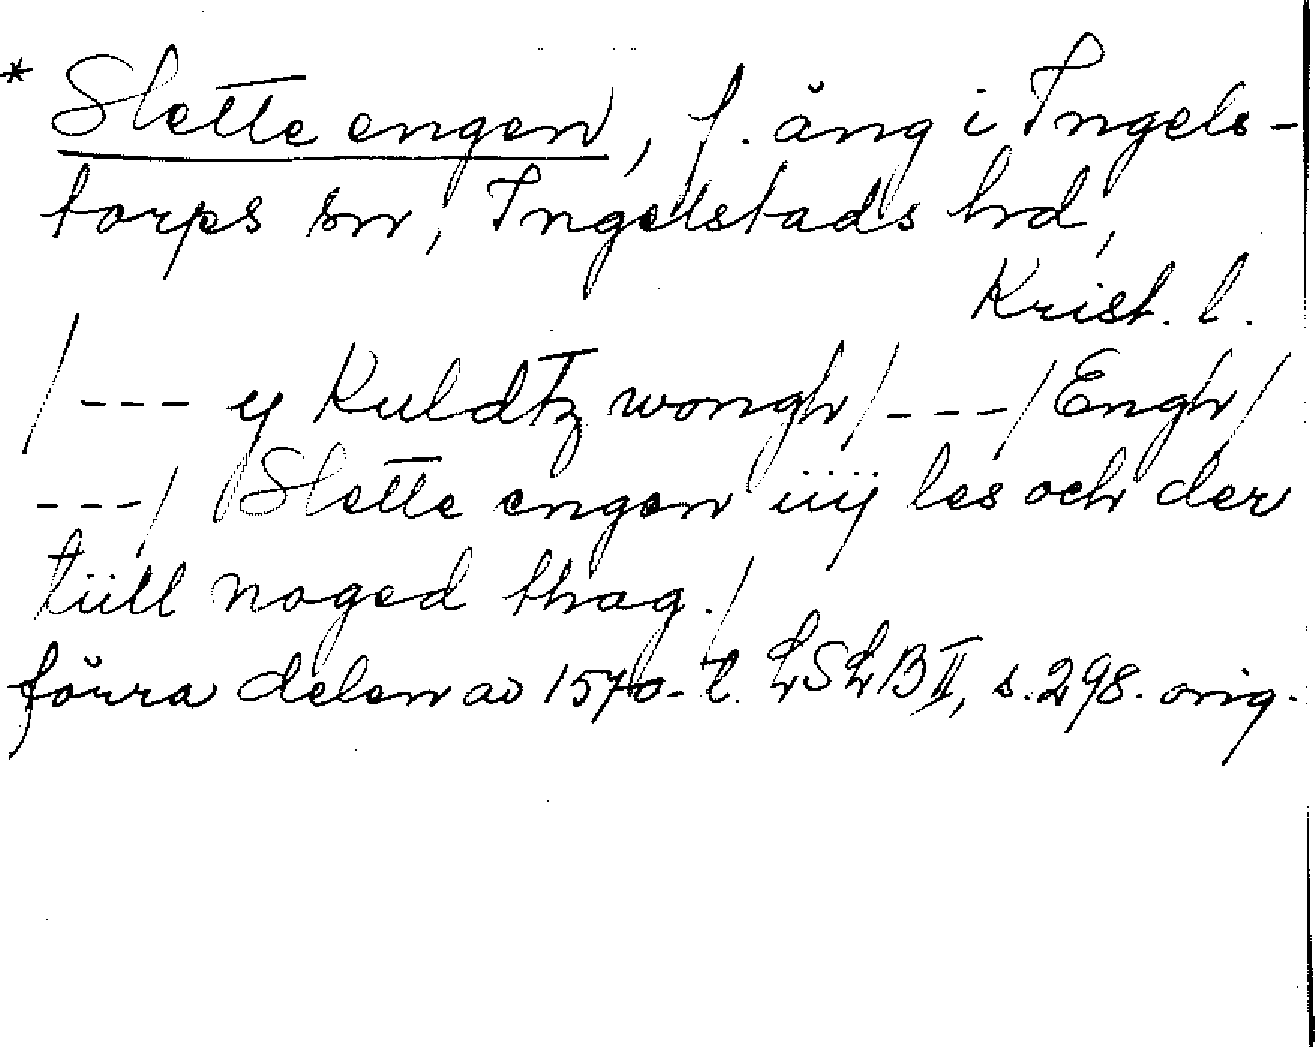 * Slette engen, f. äng i Ingels-
torps sn, Ingelstads hd,
Krist. l.
/--- y Kuldtz wongh/---/Engh/
---/ Slette engen iiij les och der
tüll noged thag./
förra delen av 1570-t. LSLB II, s. 298. orig.